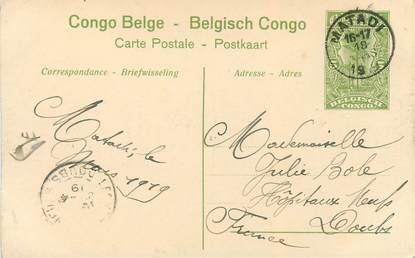 Congo Belge - Belgisch Congo
Carte Postale - Postkaart
Correspondance - Briefwisseling
Adresse - Adres
MATADI
16-17
19
BELGISCH
CONGO
Matadi, le
Mars 1919
Mademoiselle
Julie Bole
Hôpitaux Neufs
Doubs
France
DOUBS